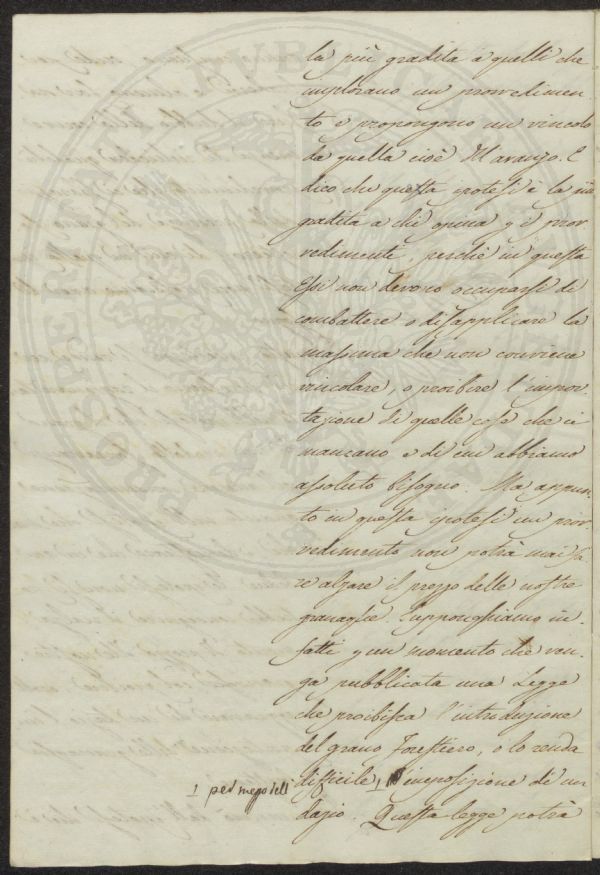 la più gradita a quelli che
implorano un provvedimen-
to e propongono un vincolo
da quella cioè M araujo. E
dico che questa ipotesi è la più
gradita a chi opina p il prov-
vedimento, perchè in questa
Essi non devono occuparsi di
combattere o disapplicare la
massima che non conviene
vincolare, o proibire l'impor-
tazione di quelle cose che ci
mancano e di cui abbiamo
assoluto bisogno. Ma appun-
to in questa ipotesi un prov-
vedimento non potrà mai fa
re alzare il prezzo delle nostre
granaglie. Supponghiamo in-
fatti p un momento che ven-
ga pubblicata una Legge
che proibisca l'introduzione
del grano forestiero, o lo renda
difficile 1 imposizione di un
1 per mezzo dell'
dazio. Questa legge potrà
PROSPERITATI PUBLICAE